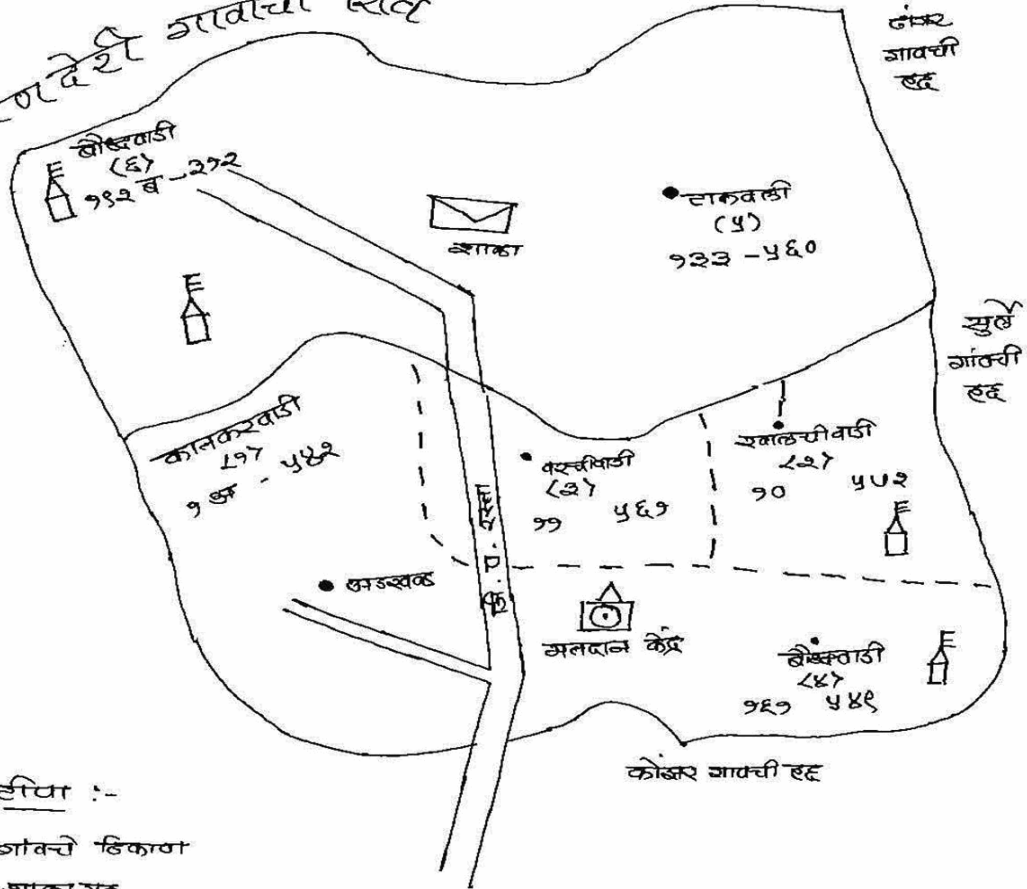 गावाची
ढांगर
गावची
हद्द
बौध्दवाडी
(६)
१९२ ब - ३१२
शाळा
टाकवली
(५)
१३३ - ५६०
सुर्ले
गांवची
हद्द
कानकरवाडी
(१)
१ अ - ५४२
वरचीवाडी
(३)
११ ५६१
(२)
१० ५७२
रस्ता
आडखळ
मतदान केंद्र
बौध्दवाडी
(४)
१६१ ५४९
कोंझर गावची हद्द
टीपा :-
गांवचे ठिकाण